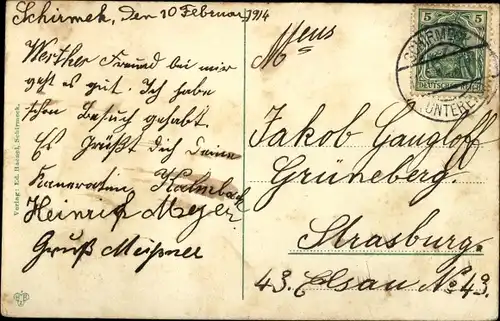 Schirmek, den 10 Februar 1914
Werther Freund bei mir
geht es gut. Ich habe
schon Besuch gehabt.
Es Grüßt Dich Deine
Kameraden Kalmbach
Heinrich Meyer.
Gruß Meißner
Mens
Jakob Gangloff
Grüneberg.
Strasburg.
43. Elsau No 43.
5 5
DEUTSCHES REICH
SCHIRMECK
(UNTEREL
Verlag: Ed. Hazael, Schirmeck.